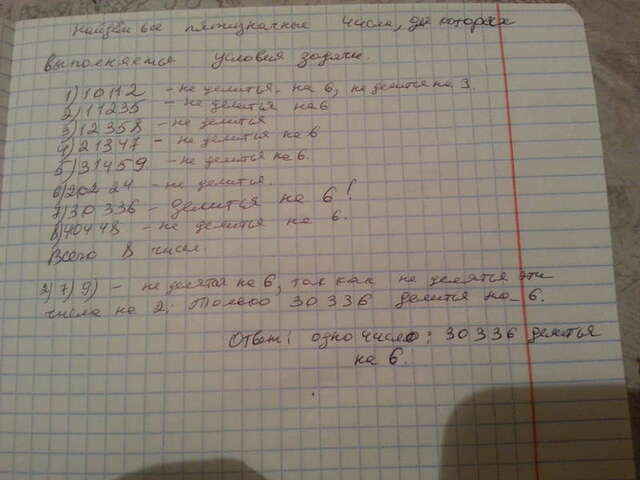 Найдём все пятизначные числа, для которых
выполняется условия задачи.
1) 10112 – не делится на 6, не делится на 3.
2) 11235 – не делится на 6
3) 12358 – не делится
4) 21347 – не делится на 6
5) 31459 – не делится на 6.
6) 20224 – не делится.
7) 30336 – делится на 6!
8) 40448 – не делится на 6.
Всего 8 чисел.
2) 7) 9) – не делятся на 6, так как не делятся эти
числа на 2; Только 30336 делится на 6.
Ответ: одно число: 30336 делится
на 6.